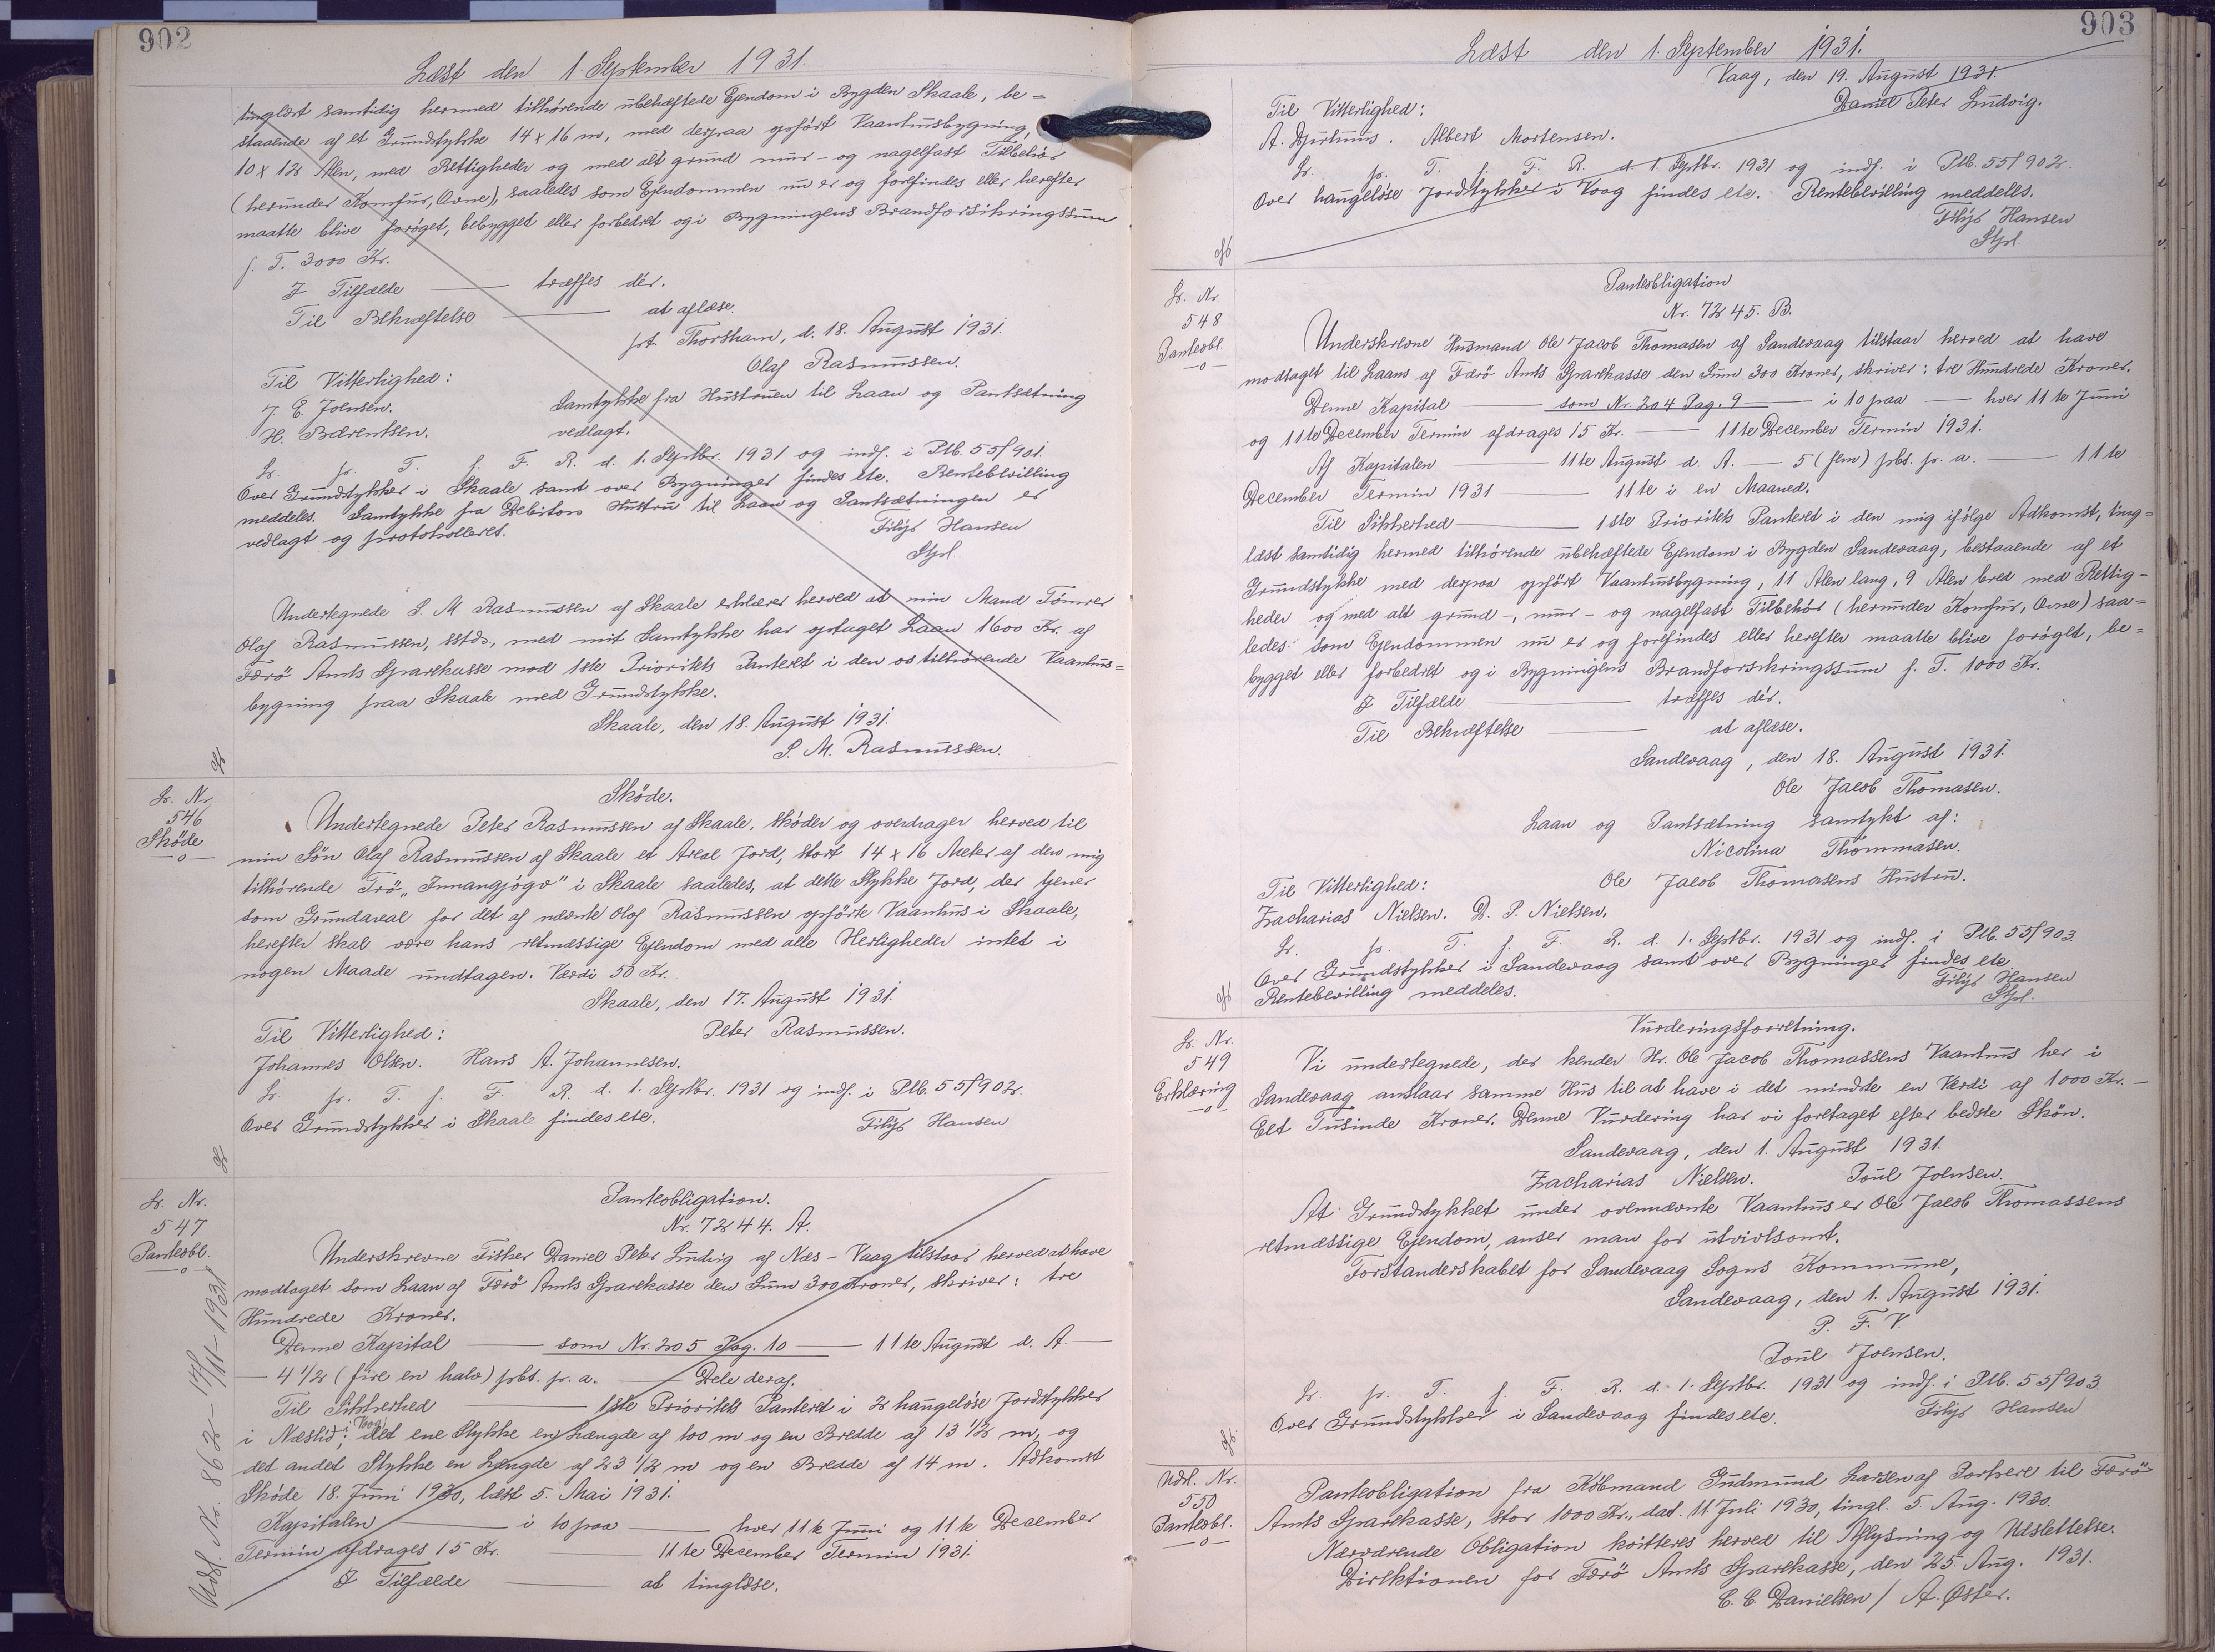 902
Læst den 1. September 1931.
tinglæst samtidig hermed tilhørende ubehæftede Ejendom i Bygden Skaale, be=
staaende af et Grundstykke 14 x 16 m, med derpaa opført Vaanhusbygning,
10 x 12 Alen, med Rettigheder og med alt grund mur- og nagelfast Tilbehör
(herunder Komfur, Ovne), saaledes som Ejendommen nu er og forefindes eller herefter
maatte blive forøget, bebygget eller forbedret og i Bygningens Brandforsikringssum
f. T. 3000 Kr.
I Tilfælde — træffes dér.
Til Bekræftelse — at aflæse.
pt. Thorshavn, d. 18. August 1931.
Olaf Rasmussen.
Til Vitterlighed:
J. E. Joensen. Samtykke fra Hustruen til Laan og Pantsætning
H. Bærentsen. vedlagt.
Lr. pr. T. f. F. R. d. 1. Septbr. 1931 og indf. i Ptb. 55f901.
Over Grundstykker i Skaale samt over Bygninger findes etc. Rentebevilling
meddeles. Samtykke fra Debitors Hustru til Laan og Pantsætningen er
vedlagt og protokolleret.
Filip Hansen
Stpl.
Undertegnede S. M. Rasmussen af Skaale erklærer herved at min Mand Tömrer
Olaf Rasmussen, sstds, med mit Samtykke har optaget Laan 1600 Kr. af
Færö Amts Sparekasse mod 1ste Prioritets Panteret i den os tilhørende Vaanhus=
bygning paa Skaale med Grundstykke.
Skaale, den 18. August 1931.
S. M. Rasmussen.
Lr. Nr.
546
Sköde
—o—
Sköde.
Undertegnede Peter Rasmussen af Skaale, sköder og overdrager herved til
min Sön Olaf Rasmussen af Skaale et Areal Jord, stort 14 x 16 Meter af den mig
tilhörende Trö „Innangjógv" i Skaale saaledes, at dette Stykke Jord, der tjener
som Grundareal for det af nævnte Olaf Rasmussen opförte Vaanhus i Skaale,
herefter skal være hans retmæssige Ejendom med alle Herligheder intet i
nogen Maade undtagen. Værdi 50 Kr.
Skaale, den 17. August 1931.
Til Vitterlighed: Peter Rasmussen.
Johannes Olsen. Hans A. Johannesen.
Lr. pr. T. f. F. R. d. 1. Septbr. 1931 og indf. i Ptb. 55f902.
Over Grundstykker i Skaale findes etc.
Filip Hansen
Lr. Nr.
547
Panteobl.
—o—
Udsl. Nr. 862 - 17/11-1931
Panteobligation.
Nr. 7244. A.
Underskrevne Fisker Daniel Peter Ludvig af Næs-Vaag tilstaar herved at have
modtaget som Laan af Færö Amts Sparekasse den Sum 300 Kroner, skriver: tre
Hundrede Kroner.
Denne Kapital — som Nr. 205 Pag. 10 — 11te August d. A. —
— 4 1/2 (fire en halv) pct. p. a. — Dele deraf.
Til Sikkerhed — 1ste Prioritets Panteret i 2 haugelöse Jordstykker
i Næslid i Vaag; det ene Stykke en Længde af 100 m og en Bredde af 13 1/2 m, og
det andet Stykke en Længde af 23 1/2 m og en Bredde af 14 m. Adkomst
Sköde 18. Juni 1930, læst 5. Mai 1931.
Kapitalen — i 10 paa — hver 11te Juni og 11te December
Termin afdrages 15 Kr. — 11te December Termin 1931.
I Tilfælde — at tinglæse.
903
Læst den 1. September 1931.
Vaag, den 19. August 1931.
Daniel Peter Ludvig.
Til Vitterlighed:
A. Djurhuus. Albert Mortensen.
Lr. pr. T. f. F. R. d. 1. Septbr. 1931 og indf. i Ptb. 55f902.
Over haugelöse Jordstykker i Vaag findes etc. Rentebevilling meddeles.
Filip Hansen
Stpl.
Lr. Nr.
548
Panteobl.
—o—
Panteobligation
Nr. 7245. B.
Underskrevne Husmand Ole Jacob Thomasen af Sandevaag tilstaar herved at have
modtaget til Laans af Færö Amts Sparekasse den Sum 300 Kroner, skriver: tre Hundrede Kroner.
Denne Kapital — som Nr. 204 Pag. 9 — i 10 paa — hver 11te Juni
og 11te December Termin afdrages 15 Kr. — 11te December Termin 1931.
Af Kapitalen — 11te August d. A. — 5 (fem) pct. p. a. — 11te
December Termin 1931 — 11te i en Maaned.
Til Sikkerhed — 1ste Prioritets Panteret i den mig ifölge Adkomst, ting=
læst samtidig hermed tilhörende ubehæftede Ejendom i Bygden Sandevaag, bestaaende af et
Grundstykke med derpaa opfört Vaanhusbygning, 11 Alen lang, 9 Alen bred med Rettig=
heder og med alt grund-, mur- og nagelfast Tilbehör (herunder Komfur, Ovne) saa=
ledes som Ejendommen nu er og forefindes eller herefter maatte blive forøget, be=
bygget eller forbedret og i Bygningens Brandforsikringssum f. T. 1000 Kr.
I Tilfælde — træffes dér.
Til Bekræftelse — at aflæse.
Sandevaag, den 18. August 1931.
Ole Jacob Thomasen.
Laan og Pantsætning samtykt af:
Nicolina Thommasen.
Til Vitterlighed: Ole Jacob Thomasens Hustru.
Zacharias Nielsen. D. P. Nielsen.
Lr. pr. T. f. F. R. d. 1. Septbr. 1931 og indf. i Ptb. 55f903.
Over Grundstykker i Sandevaag samt over Bygninger findes etc.
Rentebevilling meddeles.
Filip Hansen
Stpl.
Lr. Nr.
549
Erklæring
—o—
Vurderingsforretning.
Vi undertegnede, der kender Hr. Ole Jacob Thomassens Vaanhus her i
Sandevaag anslaar samme Hus til at have i det mindste en Værdi af 1000 Kr. —
Eet Tusinde Kroner. Denne Vurdering har vi foretaget efter bedste Skön.
Sandevaag, den 1. August 1931.
Zacharias Nielsen. Poul Joensen.
At Grundstykket under ovennævnte Vaanhus er Ole Jacob Thomassens
retmæssige Ejendom, anser man for utvivlsomt.
Forstanderskabet for Sandevaag Sogns Kommune,
Sandevaag, den 1. August 1931.
P. F. V.
Poul Joensen.
Lr. pr. T. f. F. R. d. 1. Septbr. 1931 og indf. i Ptb. 55f903.
Over Grundstykker i Sandevaag findes etc.
Filip Hansen
Udsl. Nr.
550
Panteobl.
—o—
Panteobligation fra Köbmand Gudmund Larsen af Porkere til Færö
Amts Sparekasse, stor 1000 Kr., dat. 11 Juli 1930, tingl. 5. Aug. 1930.
Nærværende Obligation kvitteres herved til Aflysning og Udslettelse.
Direktionen for Færö Amts Sparekasse, den 25. Aug. 1931.
C. C. Danielsen / A. Øster.